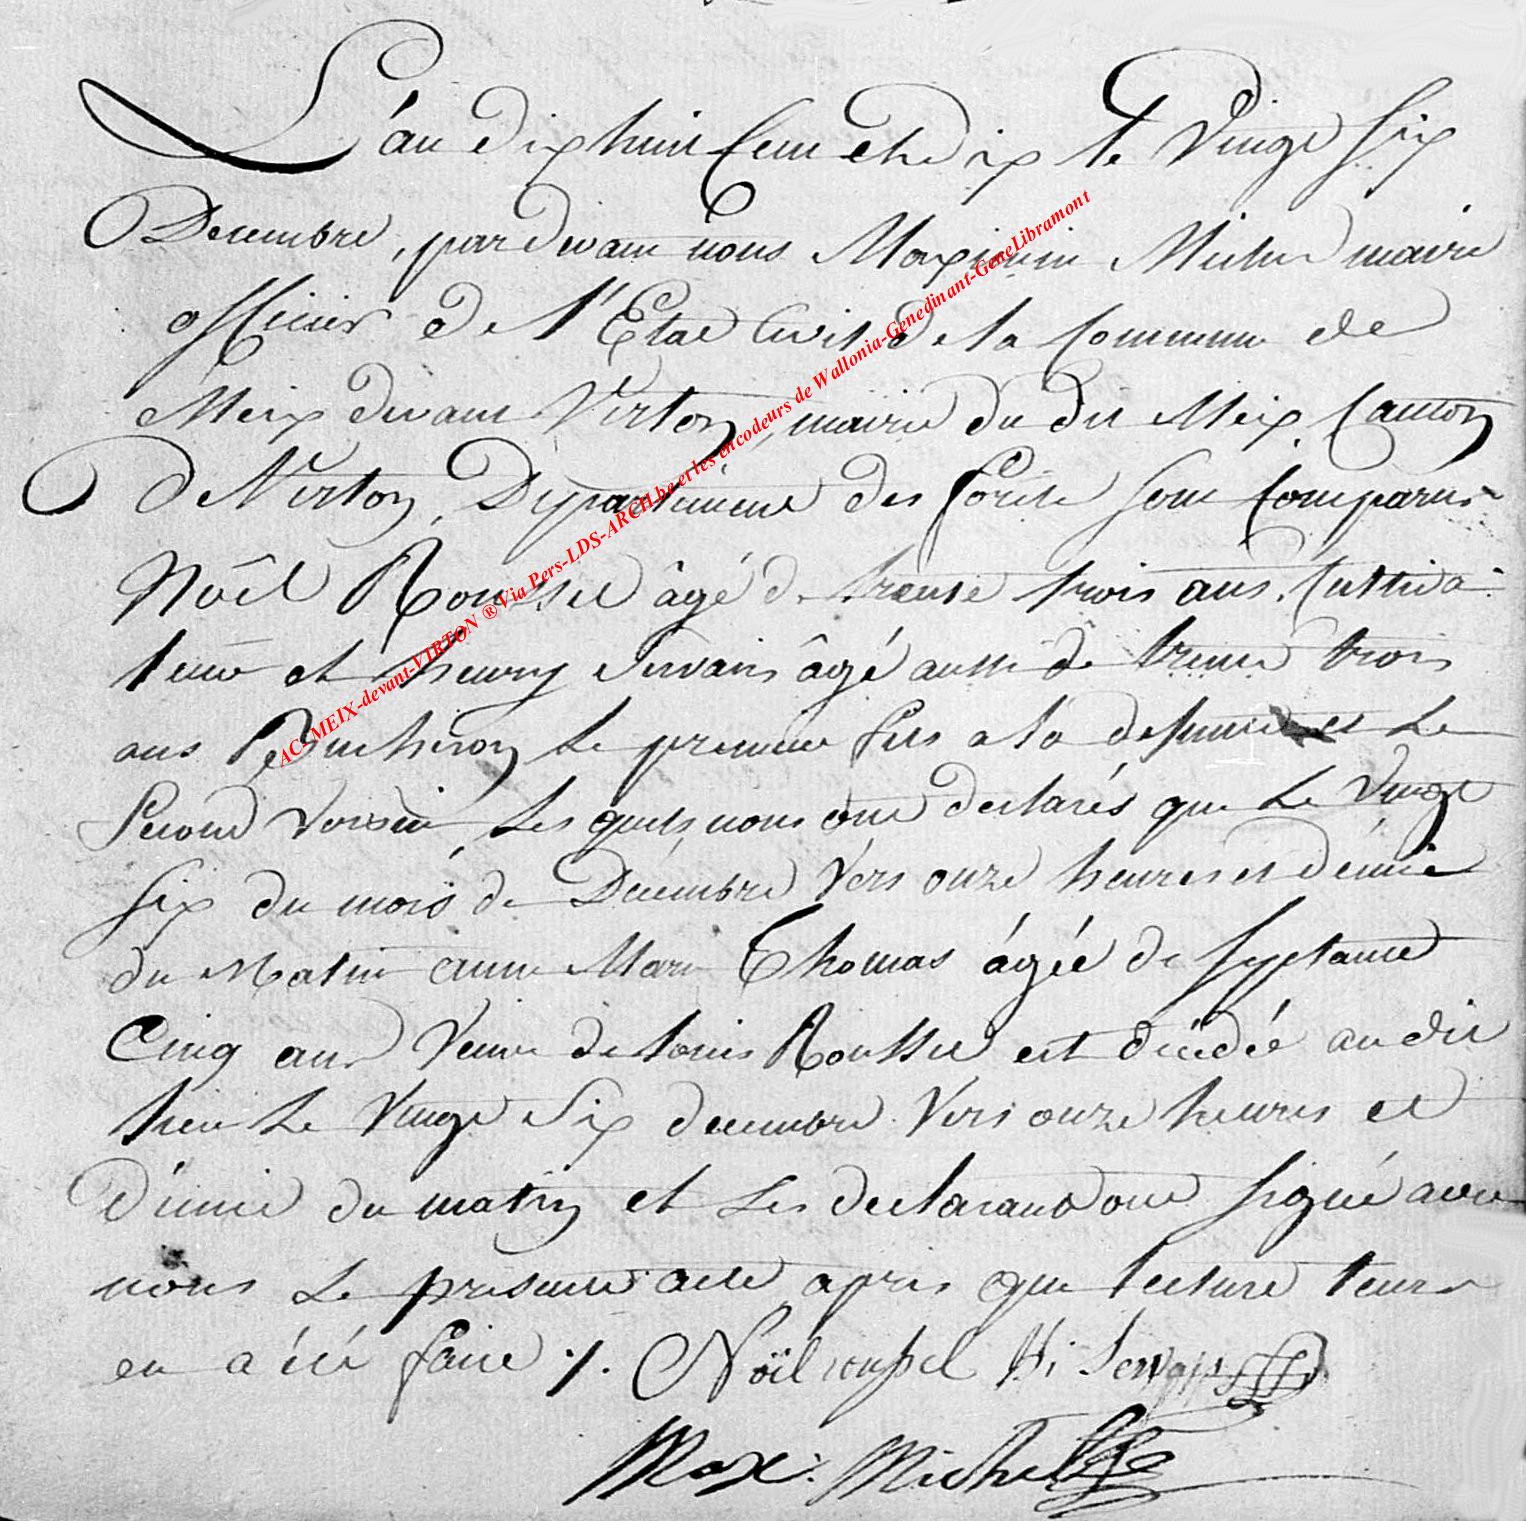 L'an dix huit Cent et dix le Vingt Six
Decembre, pardevant nous Maximin Michel maire
officier de l'Etat Civil de la Commune de
Meix devant Virton, mairie du dit Meix, Canton
de Virton, Département des forêts sont Comparus
Noël Roussel âgé de trente trois ans, Cultiva-
teur et henry Servais âgé aussi de trente trois
ans Bucheron le premier fils a la defunte et Le
Second Voisin, Les quels nous ont declarés que Le Vingt
Six du mois de Décembre Vers onze heures et démie
du Matin anne Marie Thomas ágée de Septante
Cinq ans Veuve de louis Roussel est décédée au dit
lieu Le Vingt Six decembre Vers onze heures et
démie du matin et Les declarants ont signé avec
nous Le présent acte après que lecture leurs
en a été faite ./. Noël roussel H: Servais
Max: Michel
AC-MEIX-devant-VIRTON ® Via Pers-LDS-ARCH.be et les encodeurs de Wallonia-Genedinant-GeneLibramont